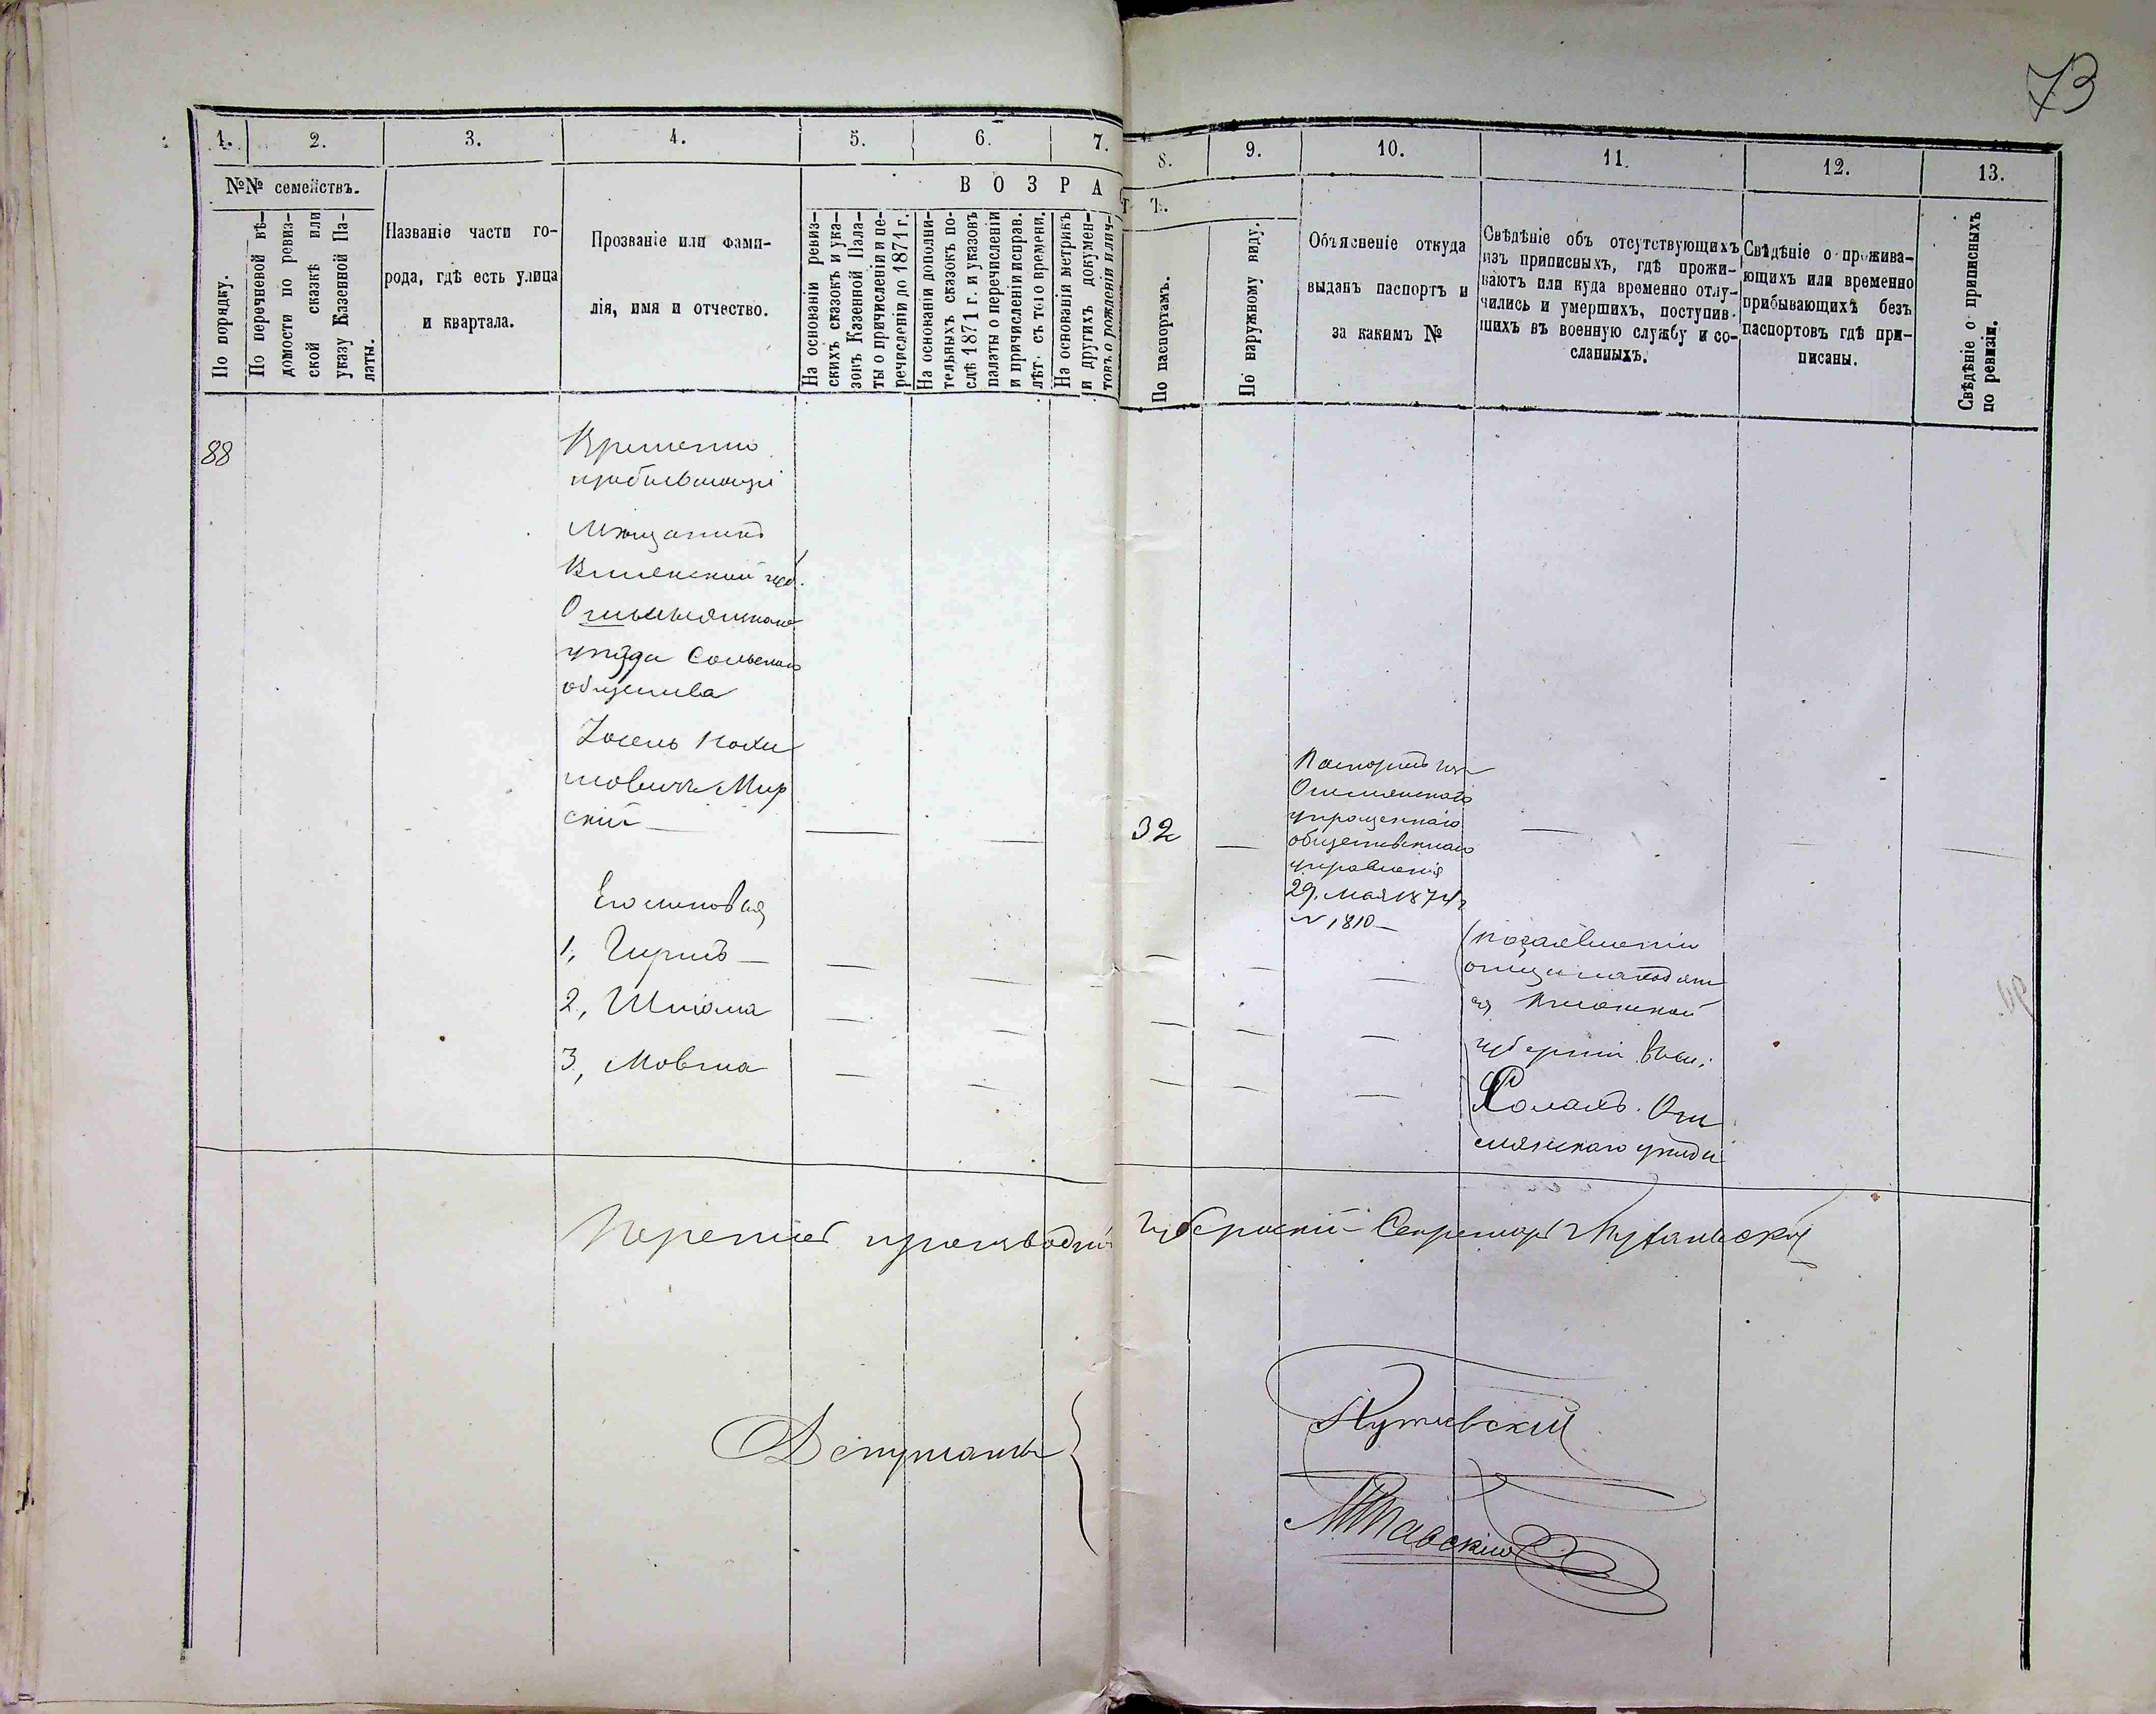 73
1.
2.
3.
4.
5.
6.
7.
8.
9.
10.
11.
12.
13.
№№ семействъ.
По порядку.
По перечневой вѣ-
домости по ревиз-
ской сказкѣ или
указу Казенной Па-
латы.
Названіе части го-
рода, гдѣ есть улица
и квартала.
Прозваніе или фами-
лія, имя и отчество.
В О З Р А
С Т Ъ.
На основаніи ревиз-
скихъ сказокъ и ука-
зовъ Казенной Пала-
ты о причисленіи и пе-
речисленіи до 1871 г.
На основаніи дополни-
тельныхъ сказокъ по-
слѣ 1871 г. и указовъ
палаты о перечисленіи
и причисленіи исправ.
лѣт. съ того времени.
На основаніи метрикъ
и другихъ докумен-
товъ о рожденіи и лич-
По паспортамъ.
По наружному виду.
Объясненіе откуда
выданъ паспортъ и
за какимъ №
Свѣдѣніе объ отсутствующихъ
изъ приписныхъ, гдѣ прожи-
ваютъ или куда временно отлу-
чились и умершихъ, поступив-
шихъ въ военную службу и со-
сланныхъ.
Свѣдѣніе о прожива-
ющихъ или временно
прибывающихъ безъ
паспортовъ гдѣ при-
писаны.
Свѣдѣніе о приписныхъ
по ревизіи.
88
Временно
пребывающіе
Мѣщанинъ
Виленской губ.
Ошмянскаго
уѣзда Сольскаго
общества
Іосель
Мир
скій
32
Паспортъ изъ
Ошмянскаго
упрощеннаго
общественнаго
управленія
29 мая 1874 г
№ 1810
Его сыновья
1, Гиршъ
2, Шліома
3, Мовша
по заявленію
отца находят
ся Виленской
губерніи въ м.
Солахъ Ош
мянскаго уѣзда
производилъ Губернскій Секретарь
Депутаты